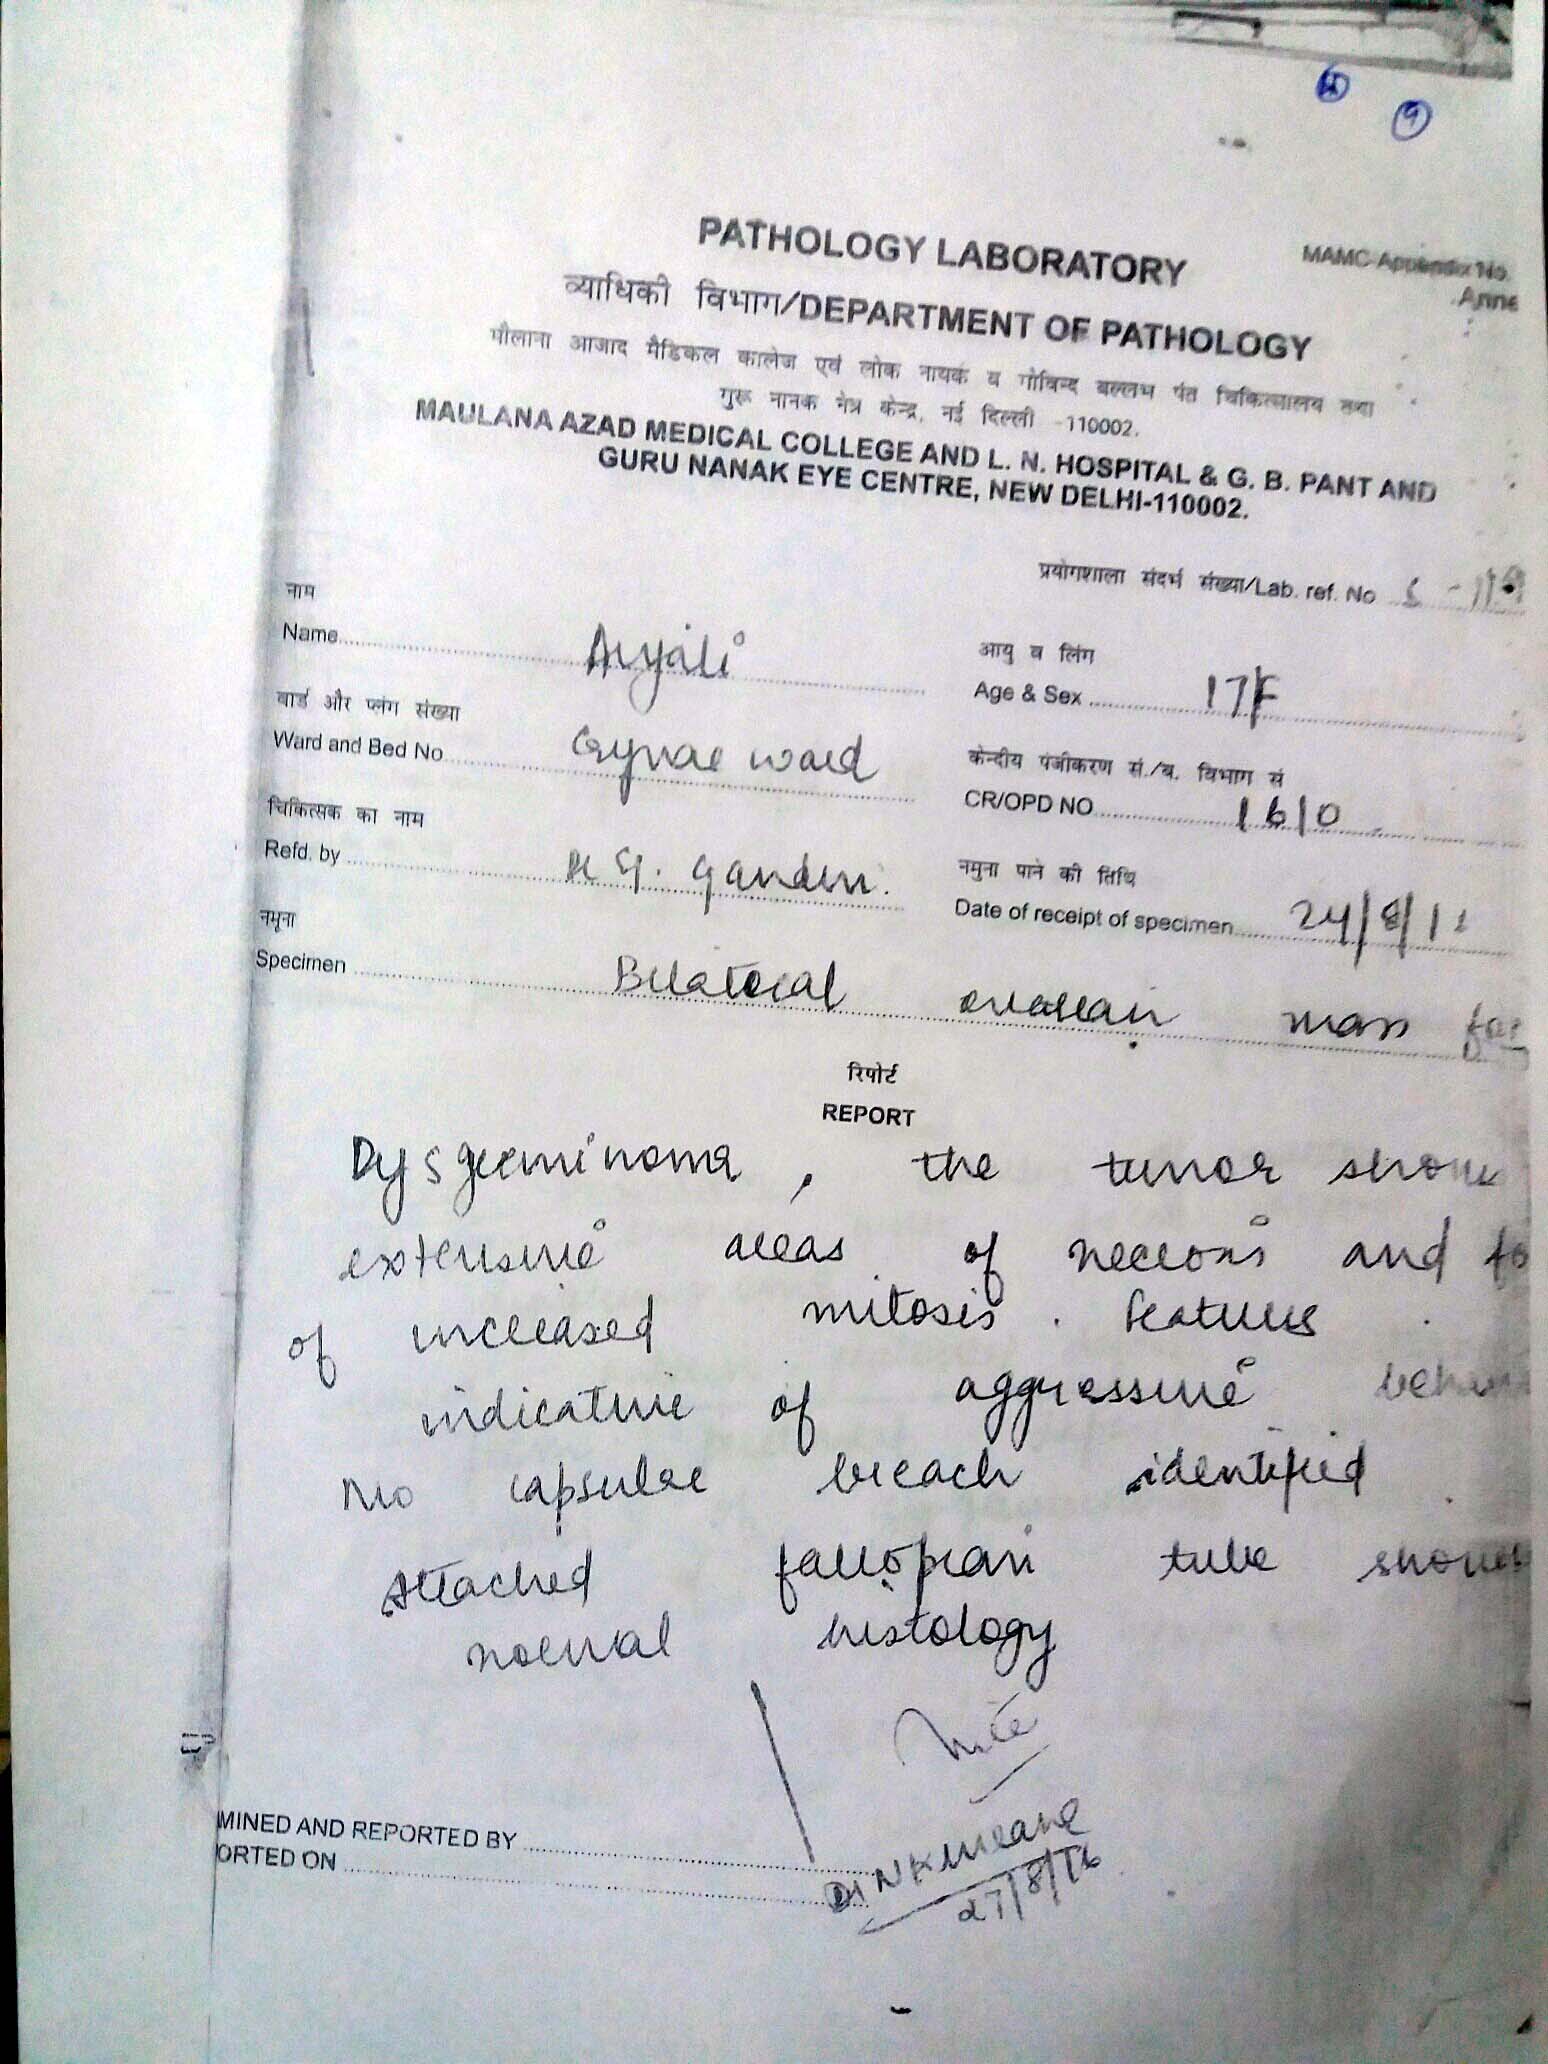 9
PATHOLOGY LABORATORY
MAMC Appendix No.
Anne
व्याधिकी विभाग/DEPARTMENT OF PATHOLOGY
मौलाना आजाद मैडिकल कालेज एवं लोक नायक व गोविन्द बल्लभ पंत चिकित्सालय तथा
गुरू नानक नेत्र केन्द्र, नई दिल्ली -110002.
MAULANA AZAD MEDICAL COLLEGE AND L. N. HOSPITAL & G. B. PANT AND
GURU NANAK EYE CENTRE, NEW DELHI-110002.
प्रयोगशाला संदर्भ संख्या/Lab. ref. No
नाम
Name Anjali
आयु व लिंग
Age & Sex 17/F
वार्ड और प्लंग संख्या
Ward and Bed No Gynae ward
केन्दीय पंजीकरण सं./ब. विभाग सं
CR/OPD NO 1610
चिकित्सक का नाम
Refd. by Gandhi
नमुना पाने की तिथि
Date of receipt of specimen 24/8/
नमूना
Specimen Bilateral ovarian mass
रिपोर्ट
REPORT
Dysgerminoma, the tumor shows
extensive areas of necrosis and fo
of increased mitosis. Features
indicative of aggressive behav
No capsular breach identified
Attached fallopian tube shows
normal histology
MINED AND REPORTED BY
ORTED ON
27/8/16